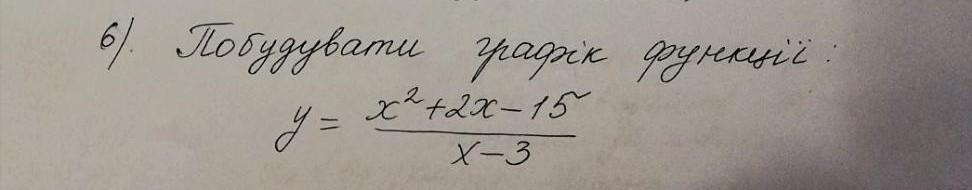 6). Побудувати графік функції:
y = x²+2x-15
x-3